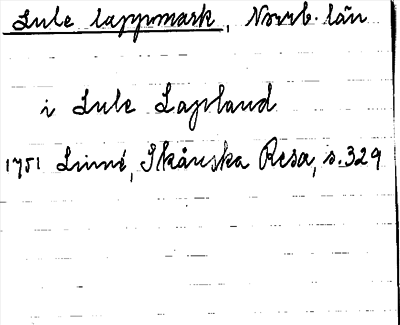 Lule lappmark, Norrb. län
i Lule Lapland
1751 Linné, Skånska Resa, s. 329